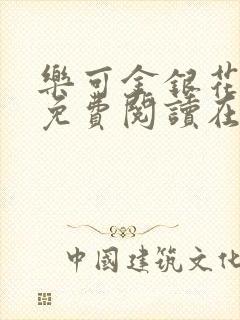 樂可金銀花
免費閱讀在
中國建筑文化